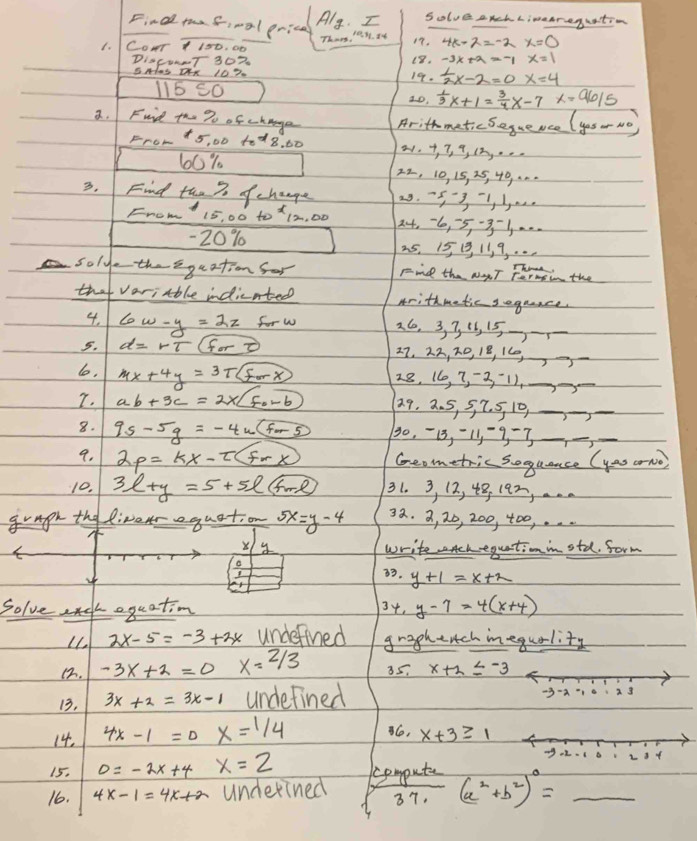 Find the final price
Alg. I
Thurs. 10.31.24
1. Cost $150.00
Discount 30%
Sales Tax 10%
115 50
2. Find the % of change
From $5.00 to $8.00
60%
3. Find the % of change
From $15.00 to $12.00
-20%
Solve the Equation for
the variable indicated
4. 6w - y = 2z for w
5. d = rT (for T)
6. mx + 4y = 3T (for x)
7. ab + 3c = 2x (for b)
8. 9s - 5g = -4u (for s)
9. 2p = kx - T (for x)
10. 3l + y = 5 + 5l (for l)
graph the linear equation 5x = y - 4
x | y
0
1
Solve each equation
11. 2x - 5 = -3 + 2x undefined
12. -3x + 2 = 0 x = 2/3
13. 3x + 2 = 3x - 1 undefined
14. 4x - 1 = 0 x = 1/4
15. 0 = -2x + 4 x = 2
16. 4x - 1 = 4x + 2 undefined
Solve each linear equation
17. 4x - 2 = -2 x = 0
18. -3x + 2 = -1 x = 1
19. 1/2 x - 2 = 0 x = 4
20. 1/3 x + 1 = 3/4 x - 7 x = 96/5
Arithmetic Sequence (yes or no)
21. 4, 7, 9, 12, ...
22. 10, 15, 25, 40, ...
23. -5, -3, -1, 1, ...
24. -6, -5, -3, -1, ...
25. 15, 13, 11, 9, ...
Find the next Three Terms in the
arithmetic sequence.
26. 3, 7, 11, 15, __, __, __
27. 22, 20, 18, 16, __, __, __
28. 16, 7, -2, -11, __, __, __
29. 2.5, 5, 7.5, 10, __, __, __
30. -13, -11, -9, -7, __, __, __
Geometric Sequence (yes or no)
31. 3, 12, 48, 192, ...
32. 2, 20, 200, 400, ...
write each equation in std. form
33. y + 1 = x + 2
34. y - 7 = 4(x + 4)
graph each inequality
35. x + 2 ≤ -3
-3 -2 -1 0 1 2 3
36. x + 3 ≥ 1
-3 -2 -1 0 1 2 3 4
compute
37. (a² + b²)⁰ = ____